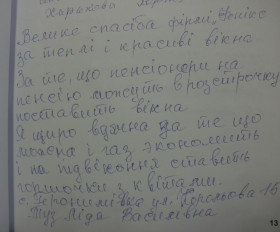 Велике спасіба фірмі, Фенікс
за теплі і красиві вікна
За те, що пенсіонери на
пенсію можуть в розстрочку
поставить вікна
Я щиро вдячна за те що
можна і газ экономить
і на підвіконня ставить
горшочки з квітами.
с. Геронимівка ул. Корольова 15
Ліда Василівна
13